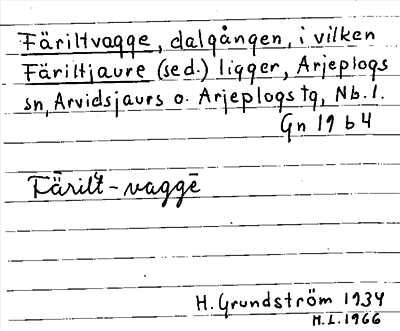 Färiltvagge, dalgången, i vilken
Färiltjaure (se d.) ligger, Arjeplogs
sn, Arvidsjaurs o. Arjeplogs tg, Nb. l.
Gn 19 b 4
Färilt-vaggē
H. Grundström 1934
M.L. 1966